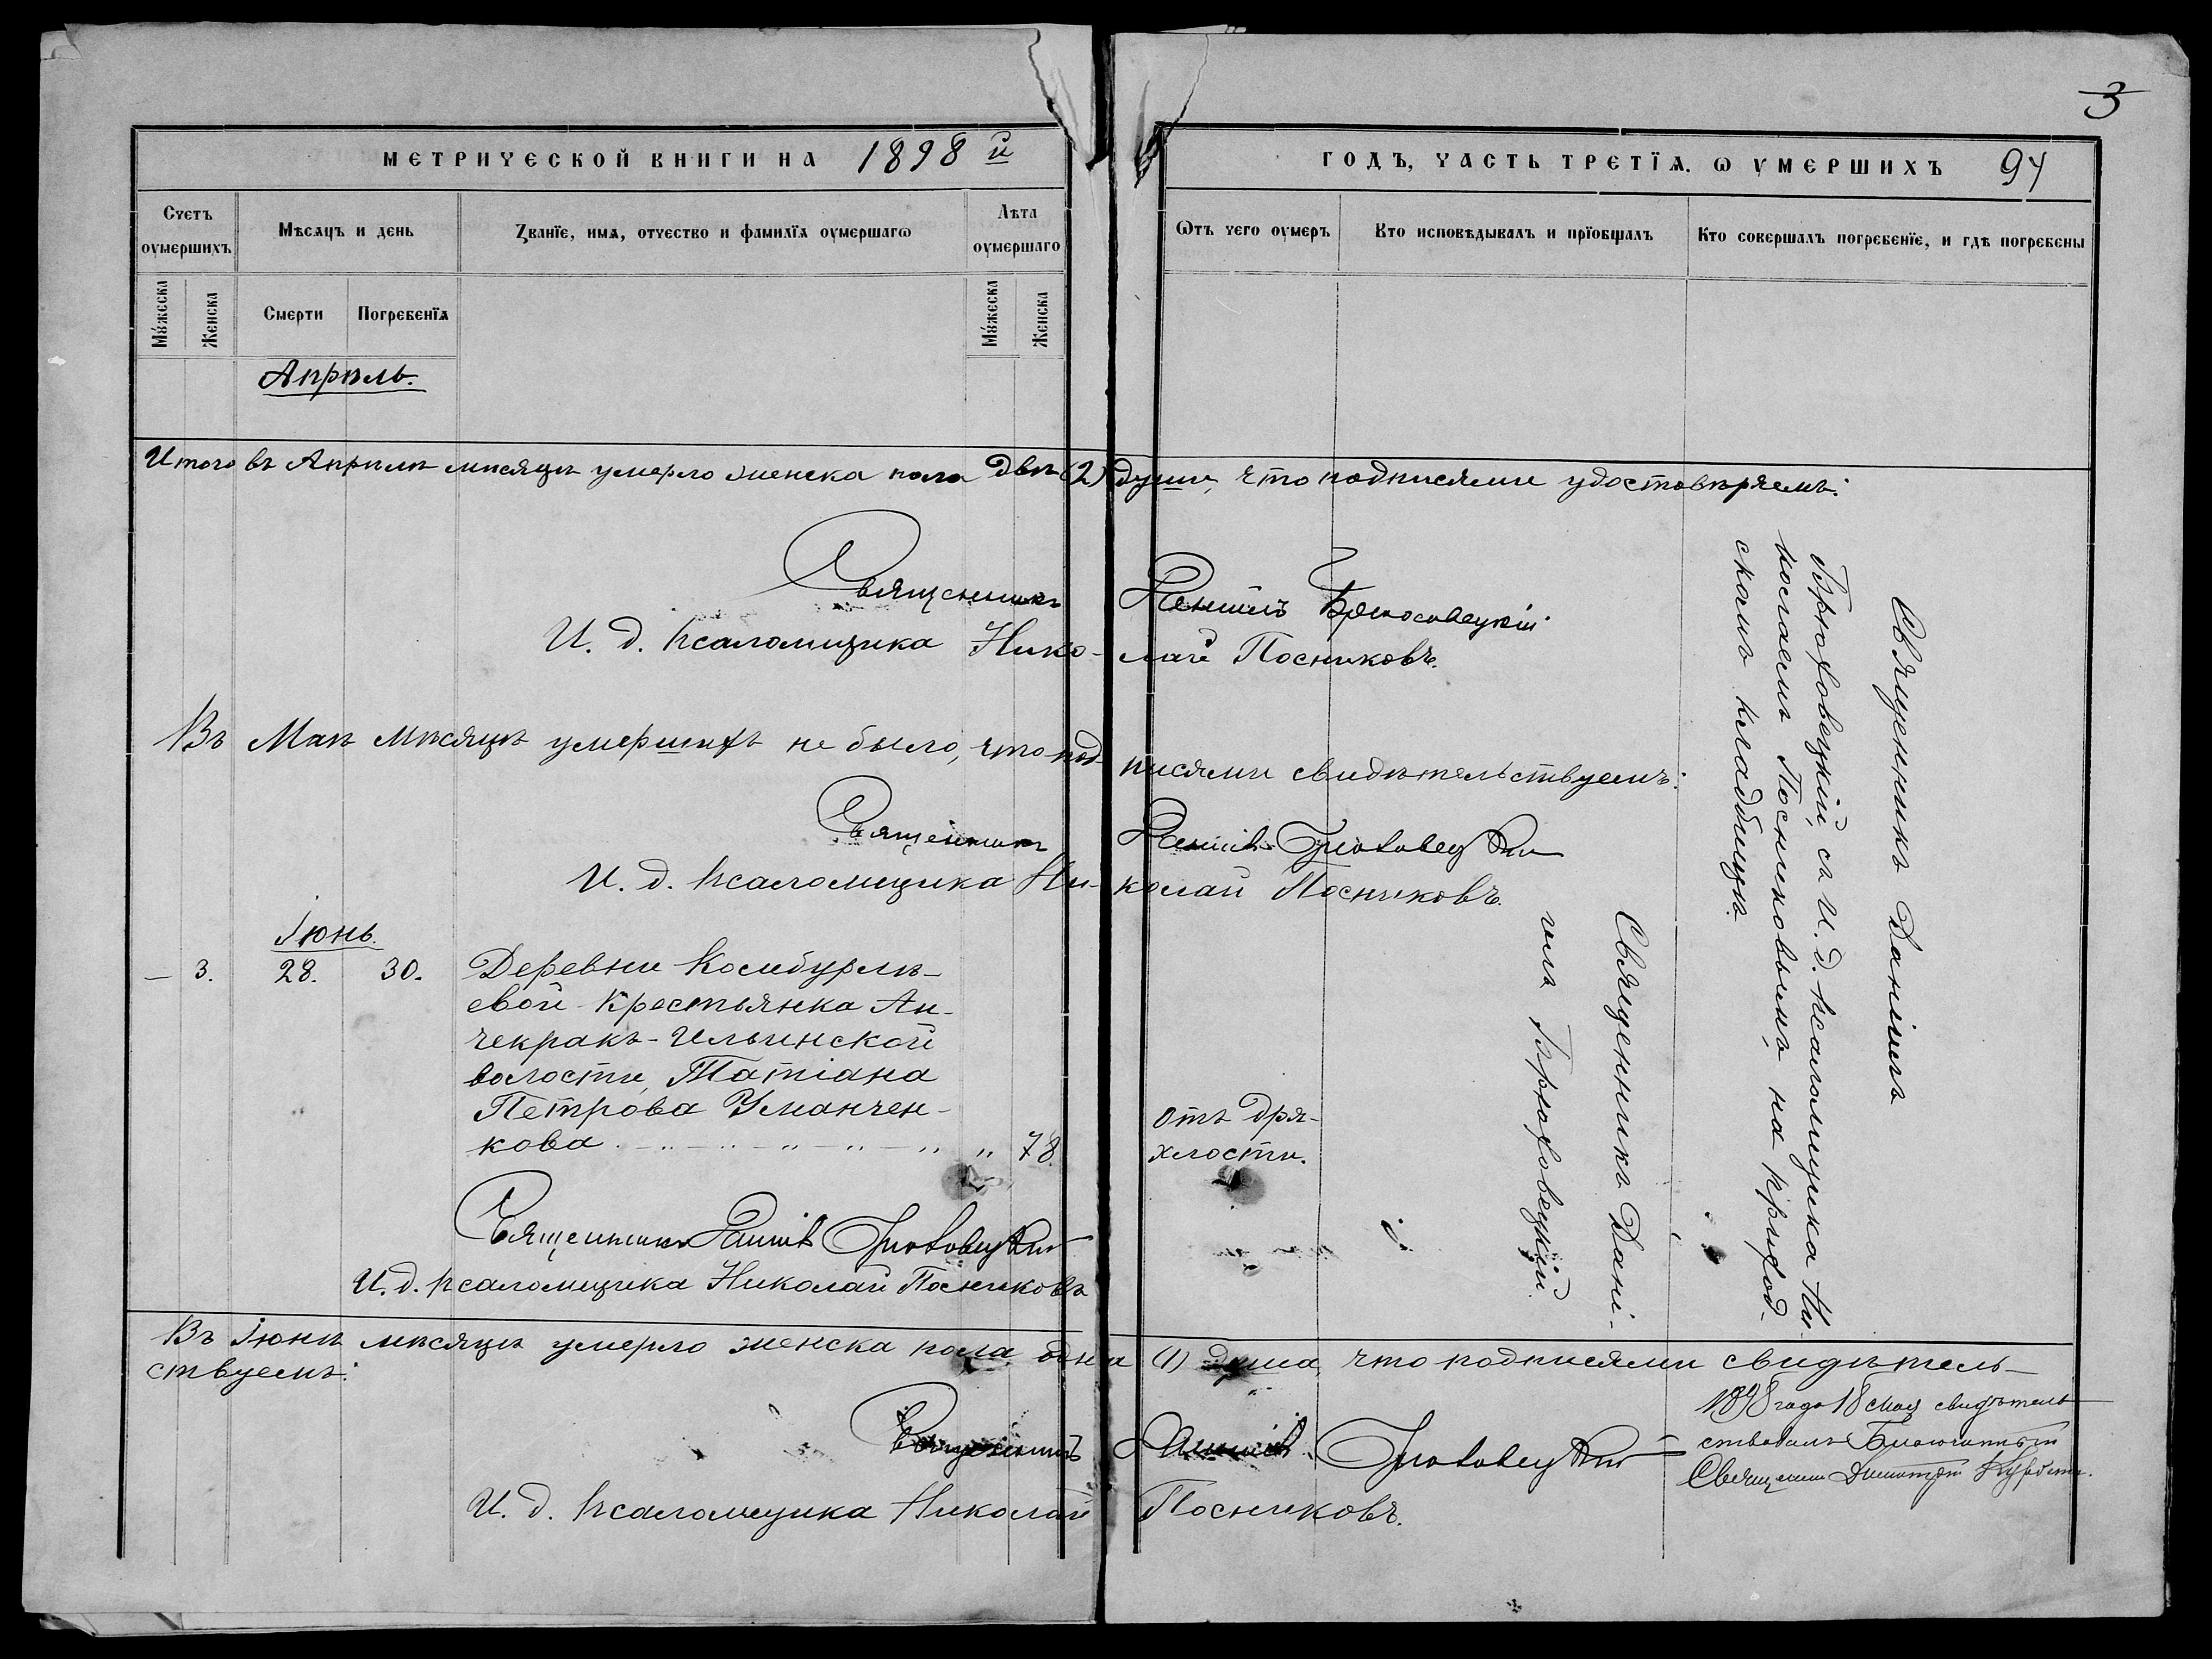 3
МЕТРИЧЕСКОЙ КНИГИ НА 1898 й
ГОДЪ, ЧАСТЬ ТРЕТІЯ. Ѡ УМЕРШИХЪ 94
Счетъ оумершихъ
Мѣсяцъ и день
Званіе, имя, отчество и фамилія оумершагѡ
Лѣта оумершаго
Ѿтъ чего оумеръ
Кто исповѣдывалъ и пріобщалъ
Кто совершалъ погребеніе, и гдѣ погребены
Мꙋжеска
Женска
Смерти
Погребенія
Мꙋжеска
Женска
Апрѣль.
Итого въ Апрѣлѣ мѣсяцѣ умерло женска пола двѣ (2) души, что подписями удостовѣряемъ:
Священникъ Даніилъ Брюховецкій
И. д. псаломщика Николай Посниковъ.
Въ Маѣ мѣсяцѣ умершихъ не было, что подписями свидѣтельствуемъ:
Священникъ Даніилъ Брюховецкій
И. д. псаломщика Николай Посниковъ.
Іюнь.
— 3. 28. 30. Деревни Косибурлѣ-
евой Крестьянка Ан-
чекракъ-Ильинской
волости, Татіана
Петрова Уманчен-
кова „ 78.
отъ дря-
хлости.
Священникъ Дані-
илъ Брюховецкій.
Священникъ Даніилъ
Брюховецкій, съ И. д. псаломщика Ни-
колаемъ Посниковымъ, на приход-
скомъ кладбищѣ.
Священникъ Даніилъ Брюховецкій
И. д. псаломщика Николай Посниковъ
Въ Іюнѣ мѣсяцѣ умерло женска пола одна (1) душа, что подписями свидѣтель-
ствуемъ:
Священникъ Даніилъ Брюховецкій
И. д. псаломщика Николай Посниковъ.
1898 года 18 мая свидѣтель-
ствовалъ Благочинный
Священникъ Димитрій